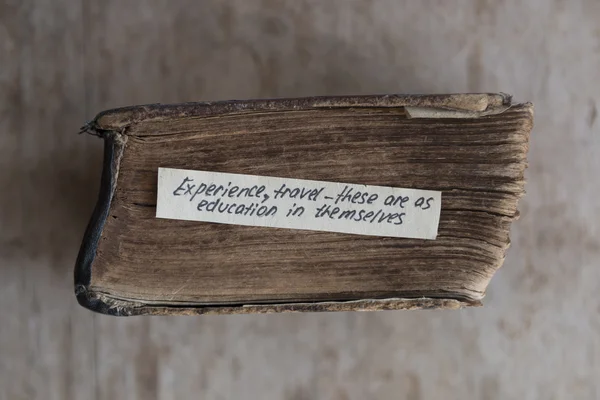 Experience, travel – these are as
education in themselves